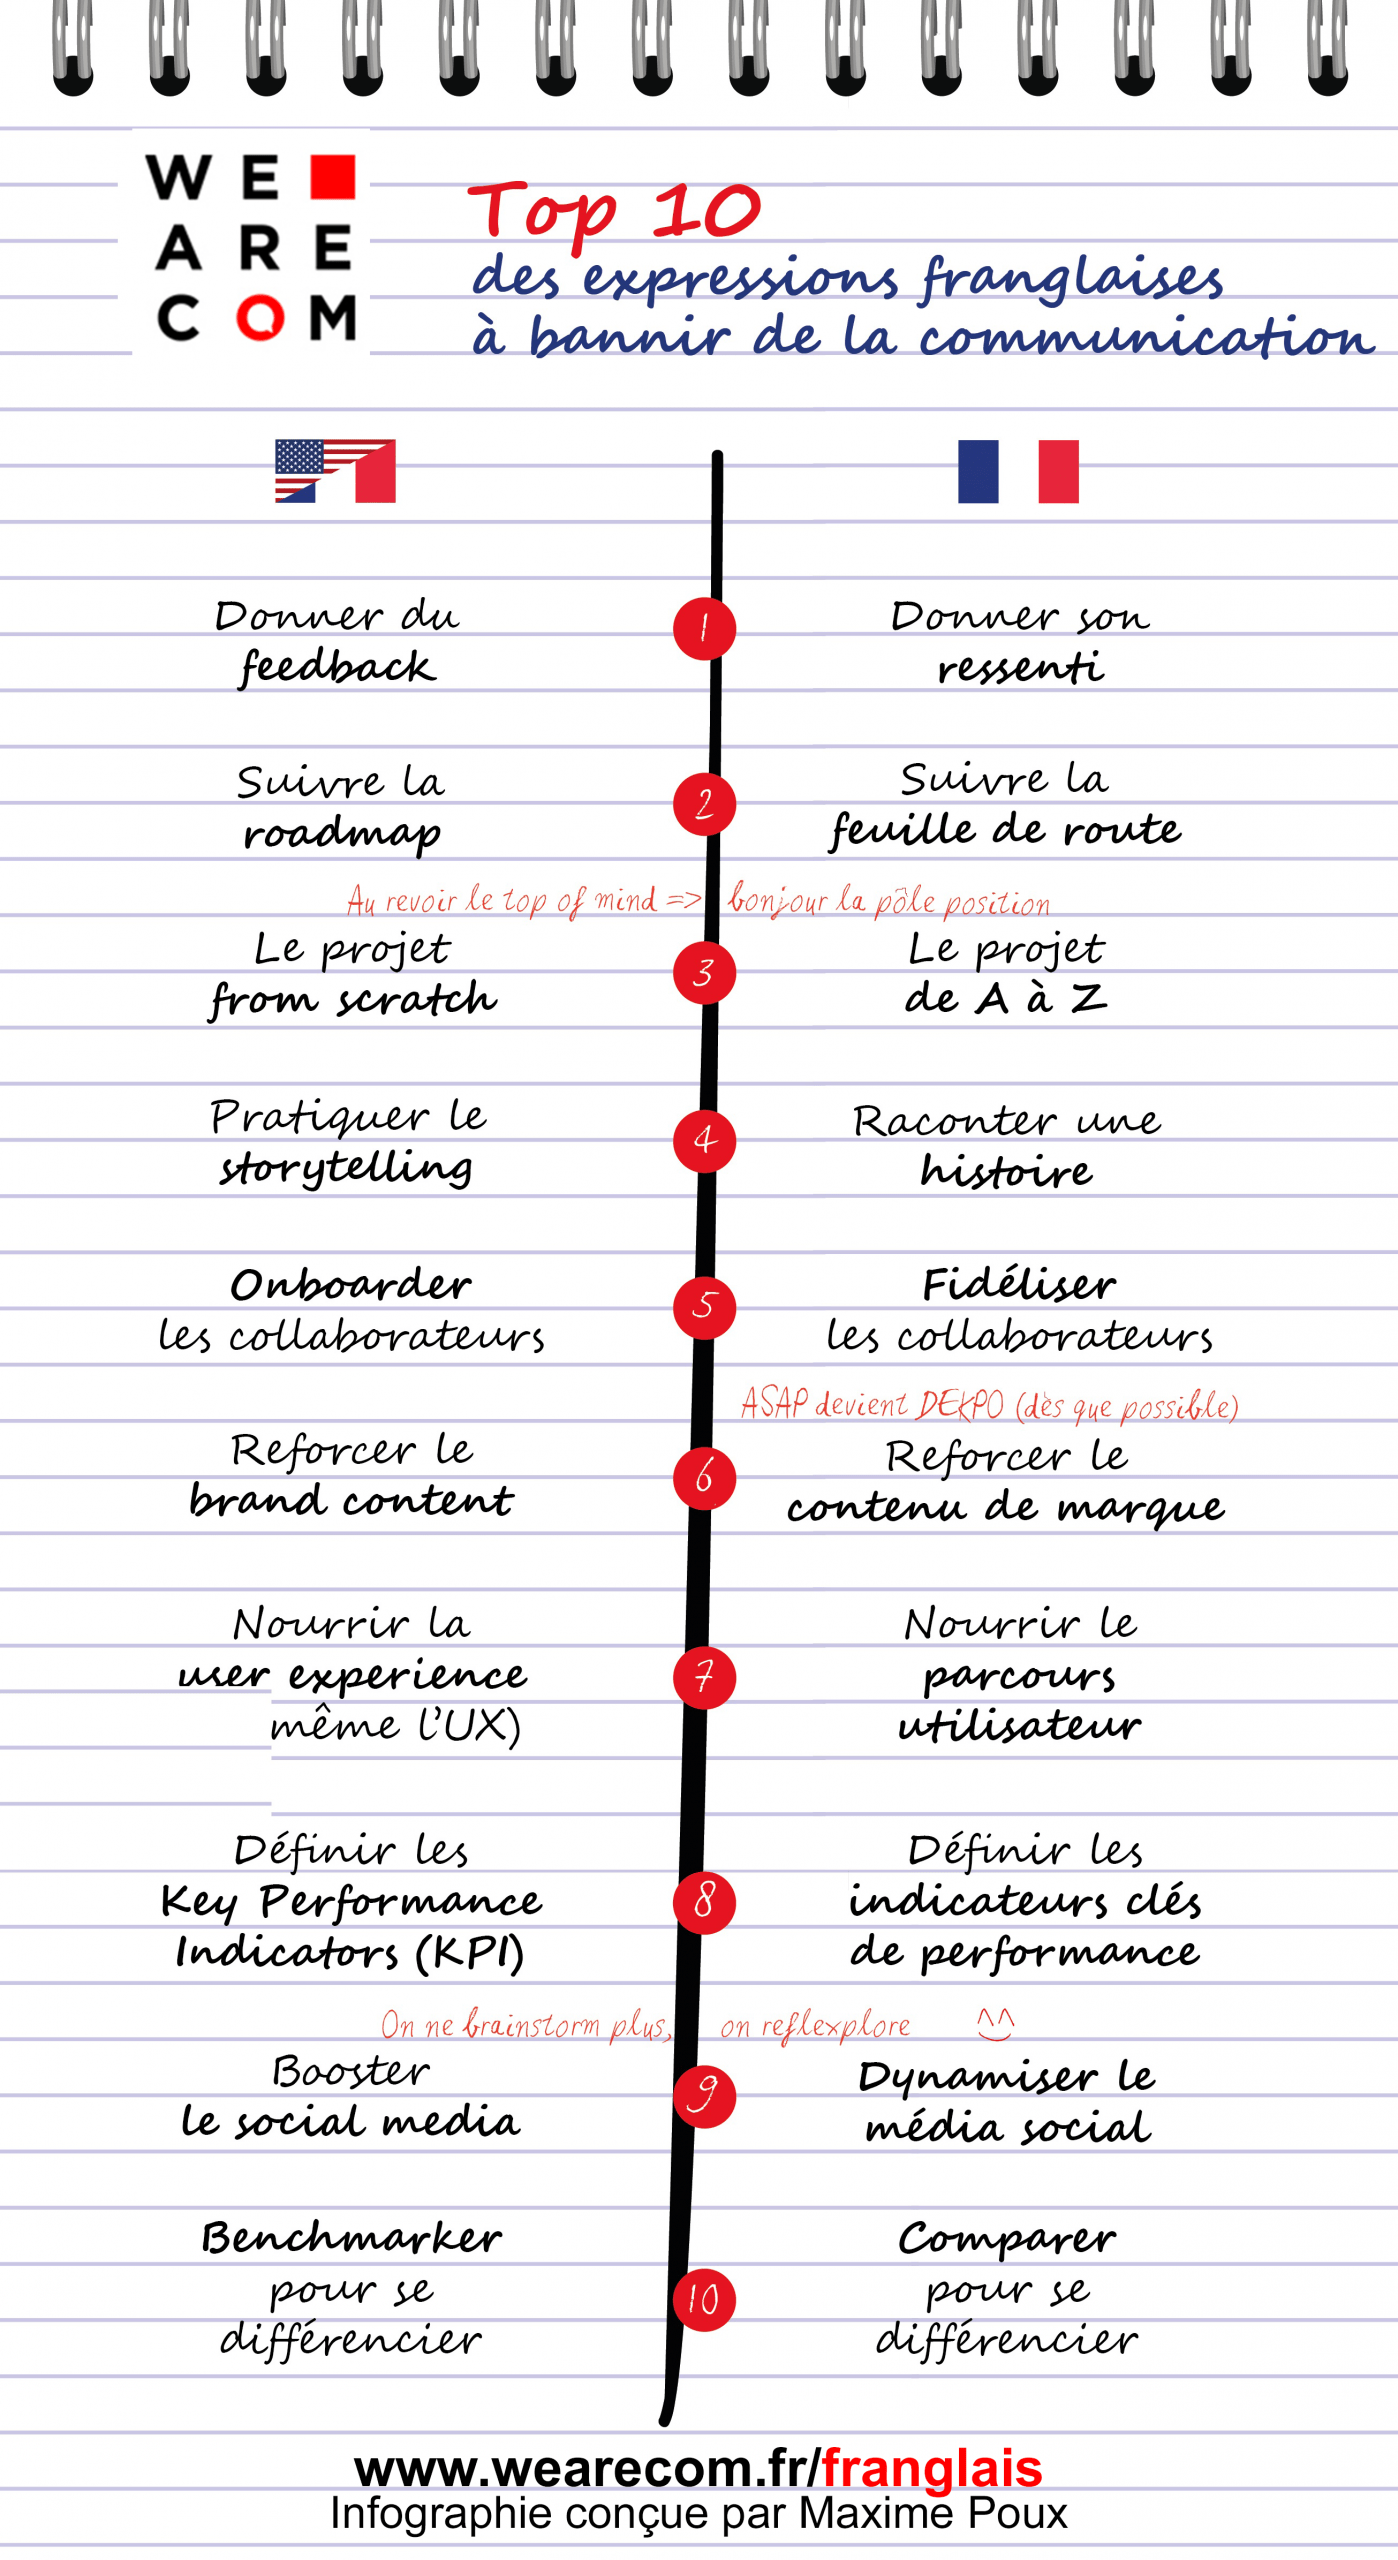 WE
ARE
COM
Top 10
des expressions franglaises
à bannir de la communication
Donner du
feedback
1
Donner son
ressenti
Suivre la
roadmap
2
Suivre la
feuille de route
Au revoir le top of mind => bonjour la pôle position
Le projet
from scratch
3
Le projet
de A à Z
Pratiquer le
storytelling
4
Raconter une
histoire
Onboarder
les collaborateurs
5
Fidéliser
les collaborateurs
ASAP devient DEKPO (dès que possible)
Reforcer le
brand content
6
Reforcer le
contenu de marque
Nourrir la
user experience
même l'UX)
7
Nourrir le
parcours
utilisateur
Définir les
Key Performance
Indicators (KPI)
8
Définir les
indicateurs clés
de performance
On ne brainstorm plus, on reflexplore ^^
Booster
le social media
9
Dynamiser le
média social
Benchmarker
pour se
différencier
10
Comparer
pour se
différencier
www.wearecom.fr/franglais
Infographie conçue par Maxime Poux